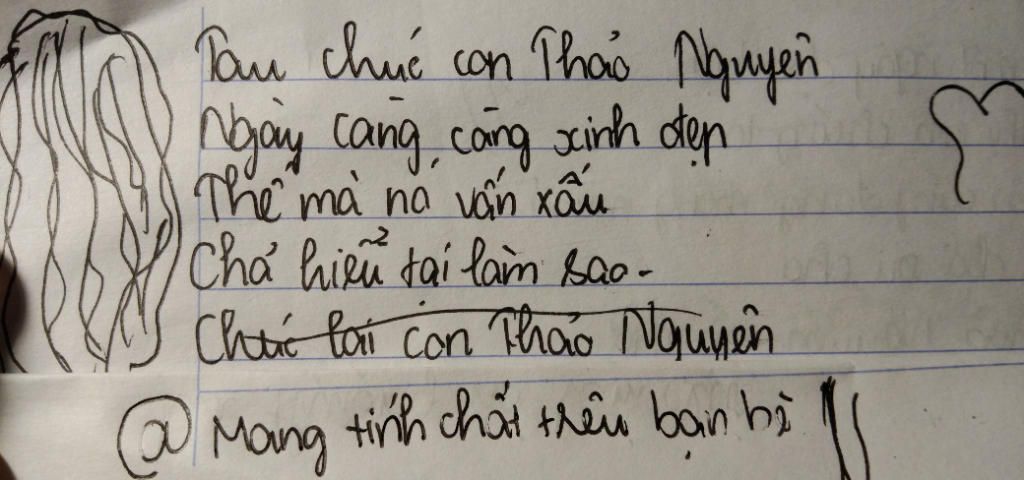 Tau chúc con Thảo Nguyên
Ngày càng, càng xinh đẹp
Thế mà nó vẫn xấu
Chả hiểu tại làm sao-
Chúc lại con Thảo Nguyên
@ Mang tính chất trêu bạn bè